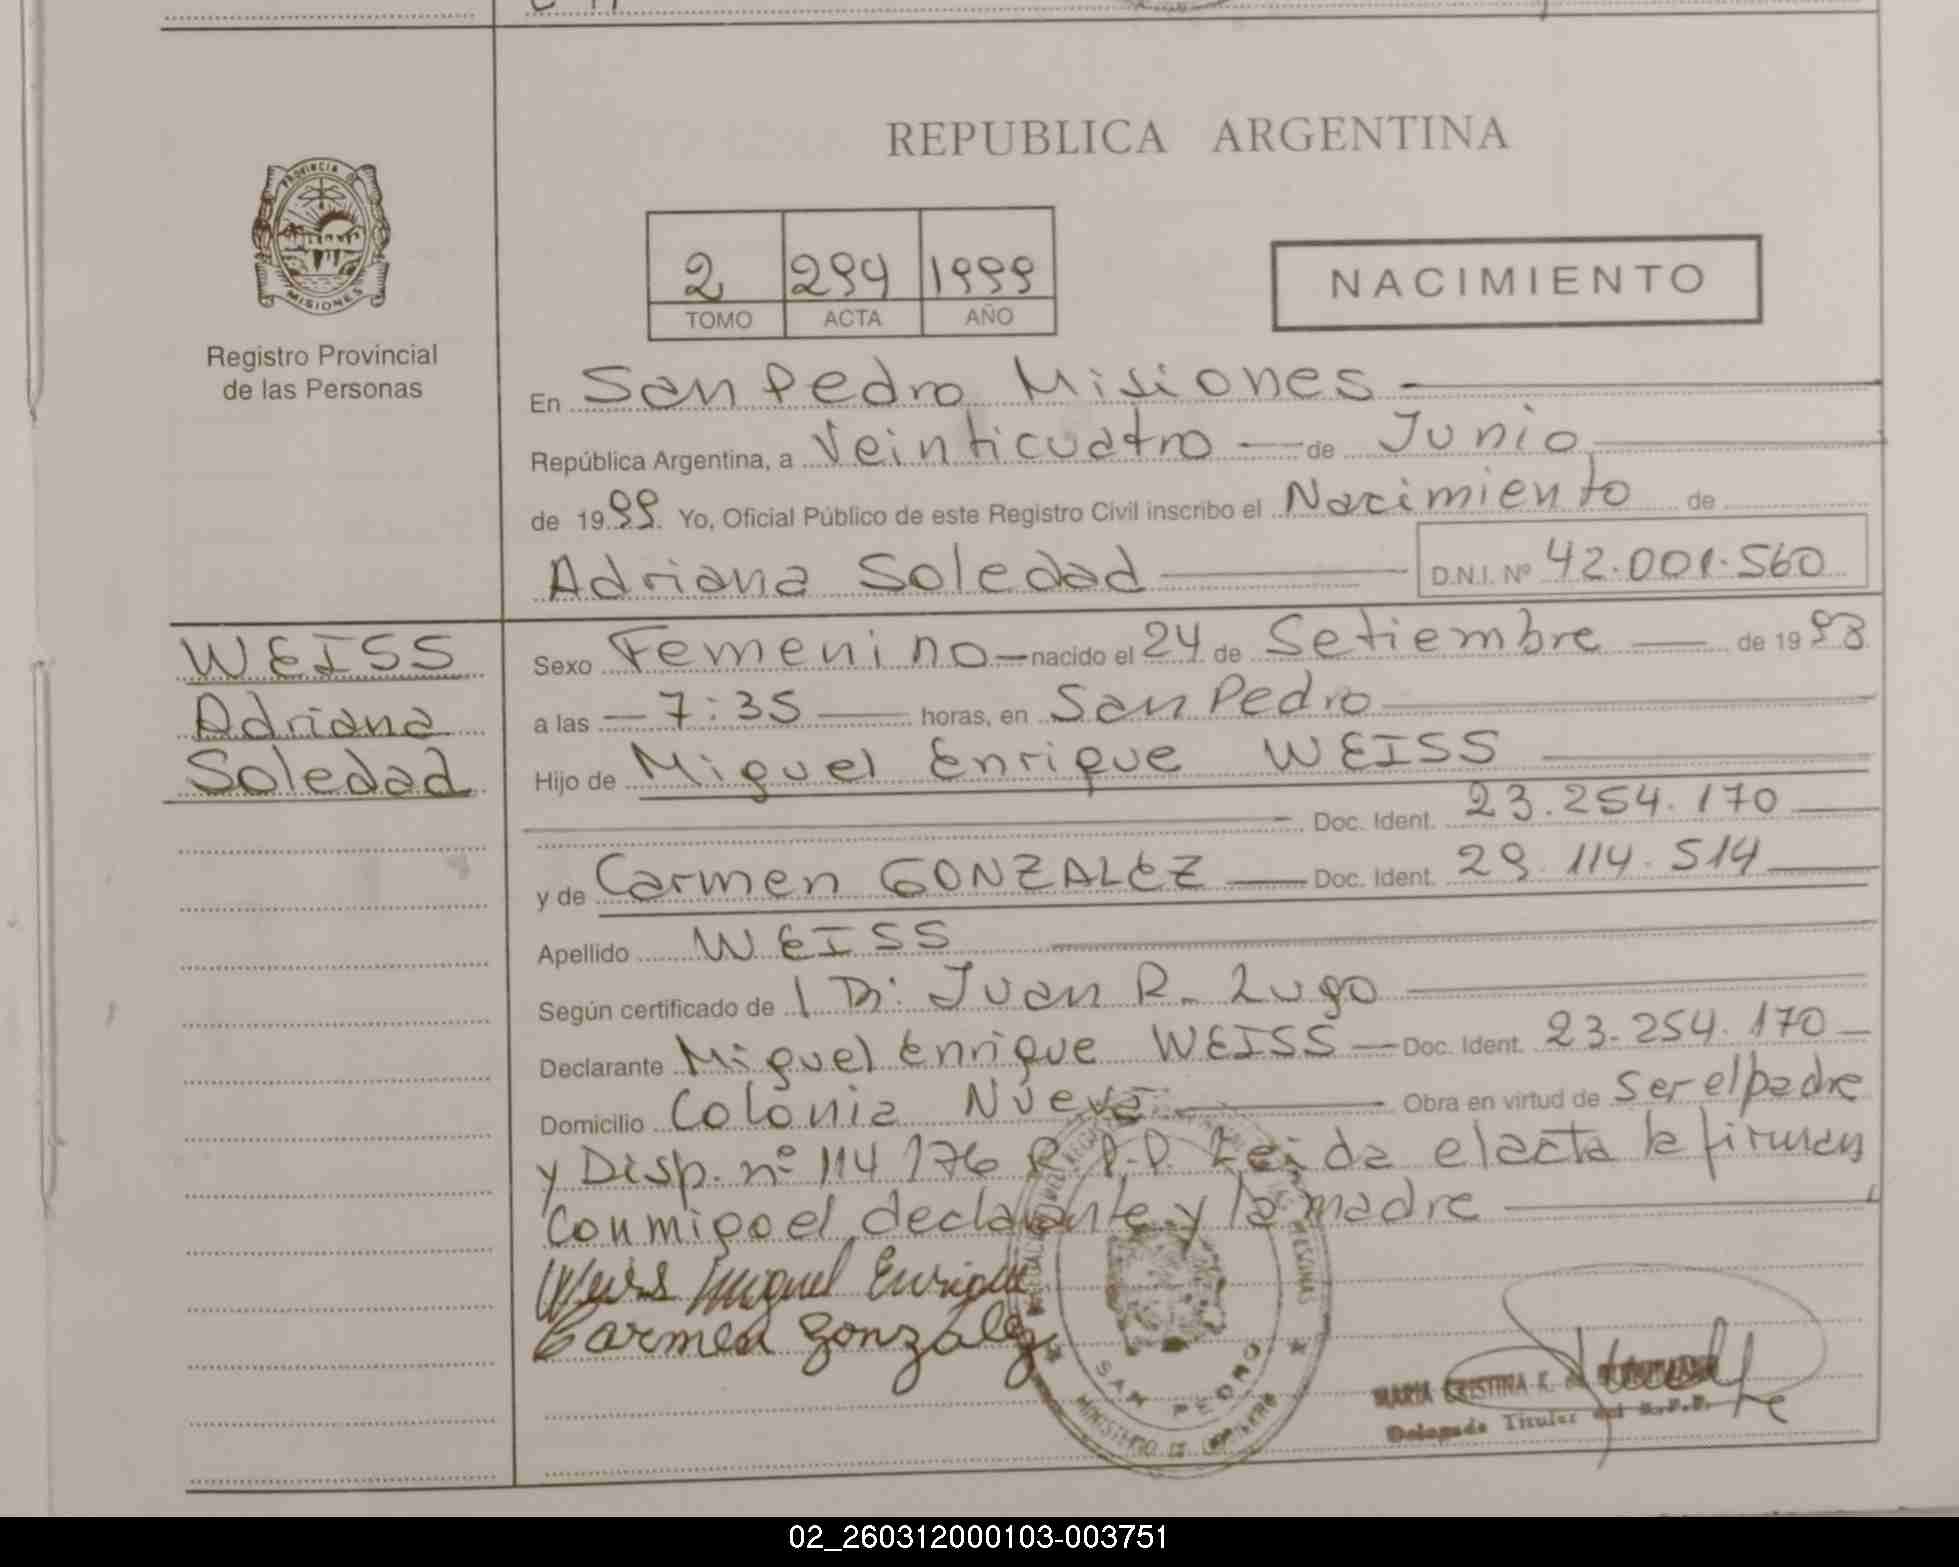 REPUBLICA ARGENTINA
PROVINCIA DE
MISIONES
Registro Provincial
de las Personas
2 294 1999
TOMO ACTA AÑO
NACIMIENTO
En San Pedro Misiones
República Argentina, a Veinticuatro de Junio
de 1999. Yo, Oficial Público de este Registro Civil inscribo el Nacimiento de
Adriana Soledad D.N.I. Nº 42.001.560
WEISS
Adriana
Soledad
Sexo Femenino nacido el 24 de Setiembre de 19
a las 7:35 horas, en San Pedro
Hijo de Miguel Enrique WEISS
Doc. Ident. 23.254.170
y de Carmen GONZALEZ Doc. Ident. 29.114.514
Apellido WEISS
Según certificado de Juan R. Lugo
Declarante Miguel Enrique WEISS Doc. Ident. 23.254.170
Domicilio Colonia Nueva Obra en virtud de ser el padre
y Disp. nº 114/76 R.P.P. Leida el acta la firman
conmigo el declarante y la madre
Weiss Miguel Enrique
Carmen González
SAN PEDRO
MINISTERIO DE GOBIERNO
MARIA CRISTINA K. de
Delegada Titular del R.P.P.
02_260312000103-003751